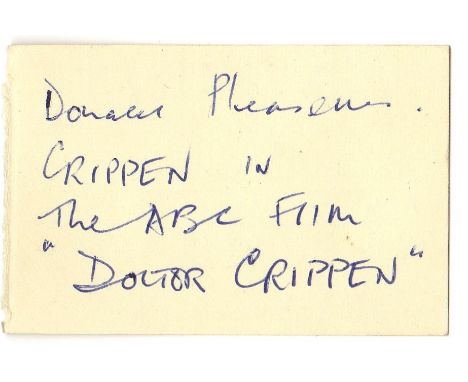 Donald Pleasence.
CRIPPEN IN
The ABC FIlm
"DOCTOR CRIPPEN"